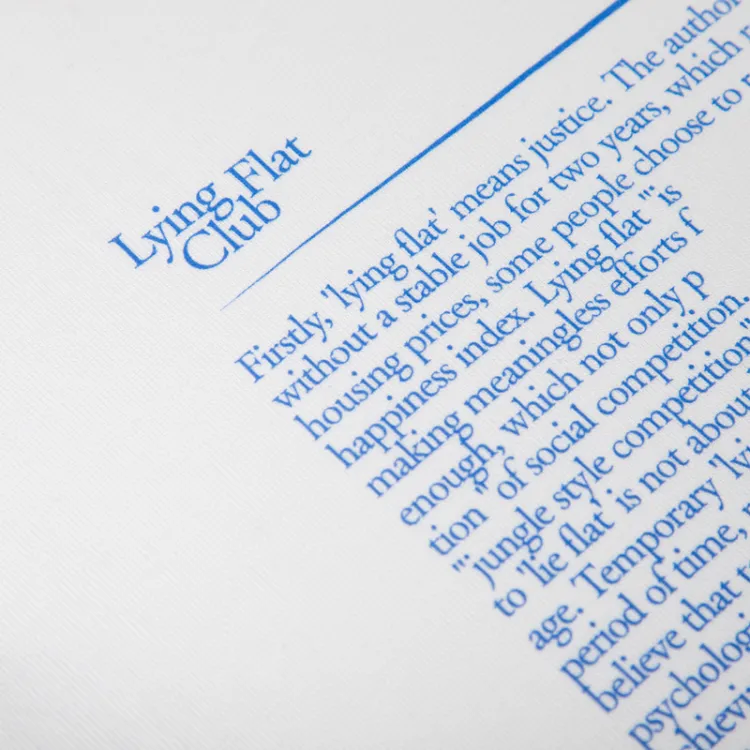 Lying Flat
Club
Firstly, 'lying flat' means justice. The author
without a stable job for two years, which
housing prices, some people choose to
happiness index. Lying flat "' is
making meaningless efforts f
enough, which not only p
tion " of social competition.
"' jungle style competition'
to 'lie flat' is not about
age. Temporary 'ly
period of time,
believe that t
psychologi
hievi